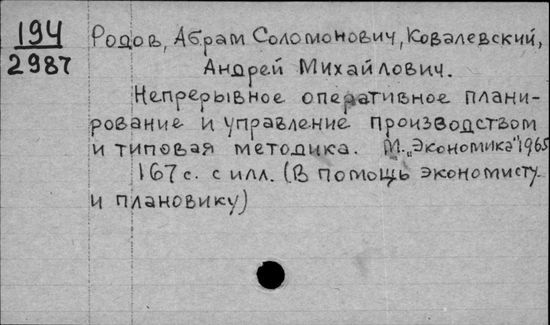 194
2987
Родов, Абрам Соломонович, Ковалевский,
Андрей Михайлович.
Непрерывное оперативное плани-
рование и управление производством
и типовая методика. М. „Экономика" 1965
167 с. с илл. (В помощь экономисту
и плановику)